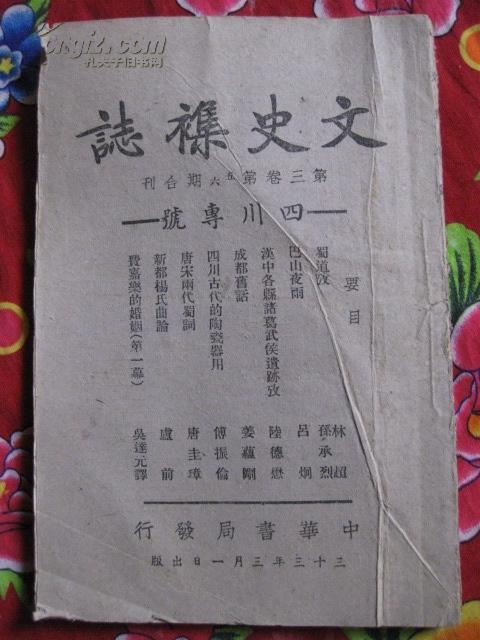 文史襍誌
第三卷第五六期合刊
四川專號
要目
蜀道攷
林超
孫承烈
巴山夜雨
呂炯
漢中各縣諸葛武侯遺跡攷
陸德懋
成都舊話
姜蘊剛
四川古代的陶瓷器用
傅振倫
唐宋兩代蜀詞
唐圭璋
新都楊氏曲論
盧前
費嘉樂的婚姻(第一幕)
吳達元譯
中華書局發行
三十三年三月一日出版
孔夫子旧书网